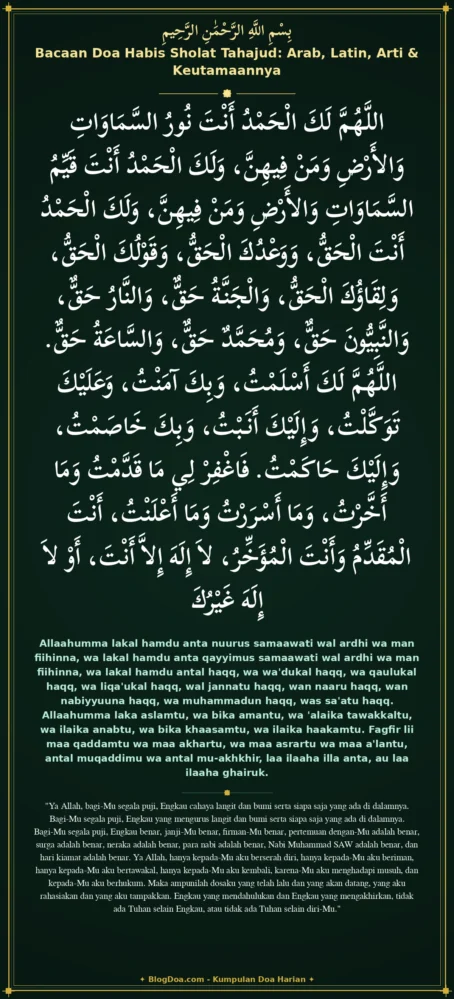 بِسْمِ اللَّهِ الرَّحْمَٰنِ الرَّحِيمِ
Bacaan Doa Habis Sholat Tahajud: Arab, Latin, Arti &
Keutamaannya
اللَّهُمَّ لَكَ الْحَمْدُ أَنْتَ نُورُ السَّمَاوَاتِ
وَالأَرْضِ وَمَنْ فِيهِنَّ، وَلَكَ الْحَمْدُ أَنْتَ قَيِّمُ
السَّمَاوَاتِ وَالأَرْضِ وَمَنْ فِيهِنَّ، وَلَكَ الْحَمْدُ
أَنْتَ الْحَقُّ، وَوَعْدُكَ الْحَقُّ، وَقَوْلُكَ الْحَقُّ،
وَلِقَاؤُكَ الْحَقُّ، وَالْجَنَّةُ حَقٌّ، وَالنَّارُ حَقٌّ،
وَالنَّبِيُّونَ حَقٌّ، وَمُحَمَّدٌ حَقٌّ، وَالسَّاعَةُ حَقٌّ.
اللَّهُمَّ لَكَ أَسْلَمْتُ، وَبِكَ آمَنْتُ، وَعَلَيْكَ
تَوَكَّلْتُ، وَإِلَيْكَ أَنَبْتُ، وَبِكَ خَاصَمْتُ،
وَإِلَيْكَ حَاكَمْتُ. فَاغْفِرْ لِي مَا قَدَّمْتُ وَمَا
أَخَّرْتُ، وَمَا أَسْرَرْتُ وَمَا أَعْلَنْتُ، أَنْتَ
الْمُقَدِّمُ وَأَنْتَ الْمُؤَخِّرُ، لاَ إِلَهَ إِلاَّ أَنْتَ، أَوْ لاَ
إِلَهَ غَيْرُكَ
Allaahumma lakal hamdu anta nuurus samaawati wal ardhi wa man
fiihinna, wa lakal hamdu anta qayyimus samaawati wal ardhi wa man
fiihinna, wa lakal hamdu antal haqq, wa wa'dukal haqq, wa qaulukal
haqq, wa liqa'ukal haqq, wal jannatu haqq, wan naaru haqq, wan
nabiyyuuna haqq, wa muhammadun haqq, was sa'atu haqq.
Allaahumma laka aslamtu, wa bika amantu, wa 'alaika tawakkaltu,
wa ilaika anabtu, wa bika khaasamtu, wa ilaika haakamtu. Fagfir lii
maa qaddamtu wa maa akhartu, wa maa asrartu wa maa a'lantu,
antal muqaddimu wa antal mu-akhkhir, laa ilaaha illa anta, au laa
ilaaha ghairuk.
"Ya Allah, bagi-Mu segala puji, Engkau cahaya langit dan bumi serta siapa saja yang ada di dalamnya.
Bagi-Mu segala puji, Engkau yang mengurus langit dan bumi serta siapa saja yang ada di dalamnya.
Bagi-Mu segala puji, Engkau benar, janji-Mu benar, firman-Mu benar, pertemuan dengan-Mu adalah benar,
surga adalah benar, neraka adalah benar, para nabi adalah benar, Nabi Muhammad SAW adalah benar, dan
hari kiamat adalah benar. Ya Allah, hanya kepada-Mu aku berserah diri, hanya kepada-Mu aku beriman,
hanya kepada-Mu aku bertawakal, hanya kepada-Mu aku kembali, karena-Mu aku menghadapi musuh, dan
kepada-Mu aku berhukum. Maka ampunilah dosaku yang telah lalu dan yang akan datang, yang aku
rahasiakan dan yang aku tampakkan. Engkau yang mendahulukan dan Engkau yang mengakhirkan, tidak
ada Tuhan selain Engkau, atau tidak ada Tuhan selain diri-Mu."
✦ BlogDoa.com - Kumpulan Doa Harian ✦